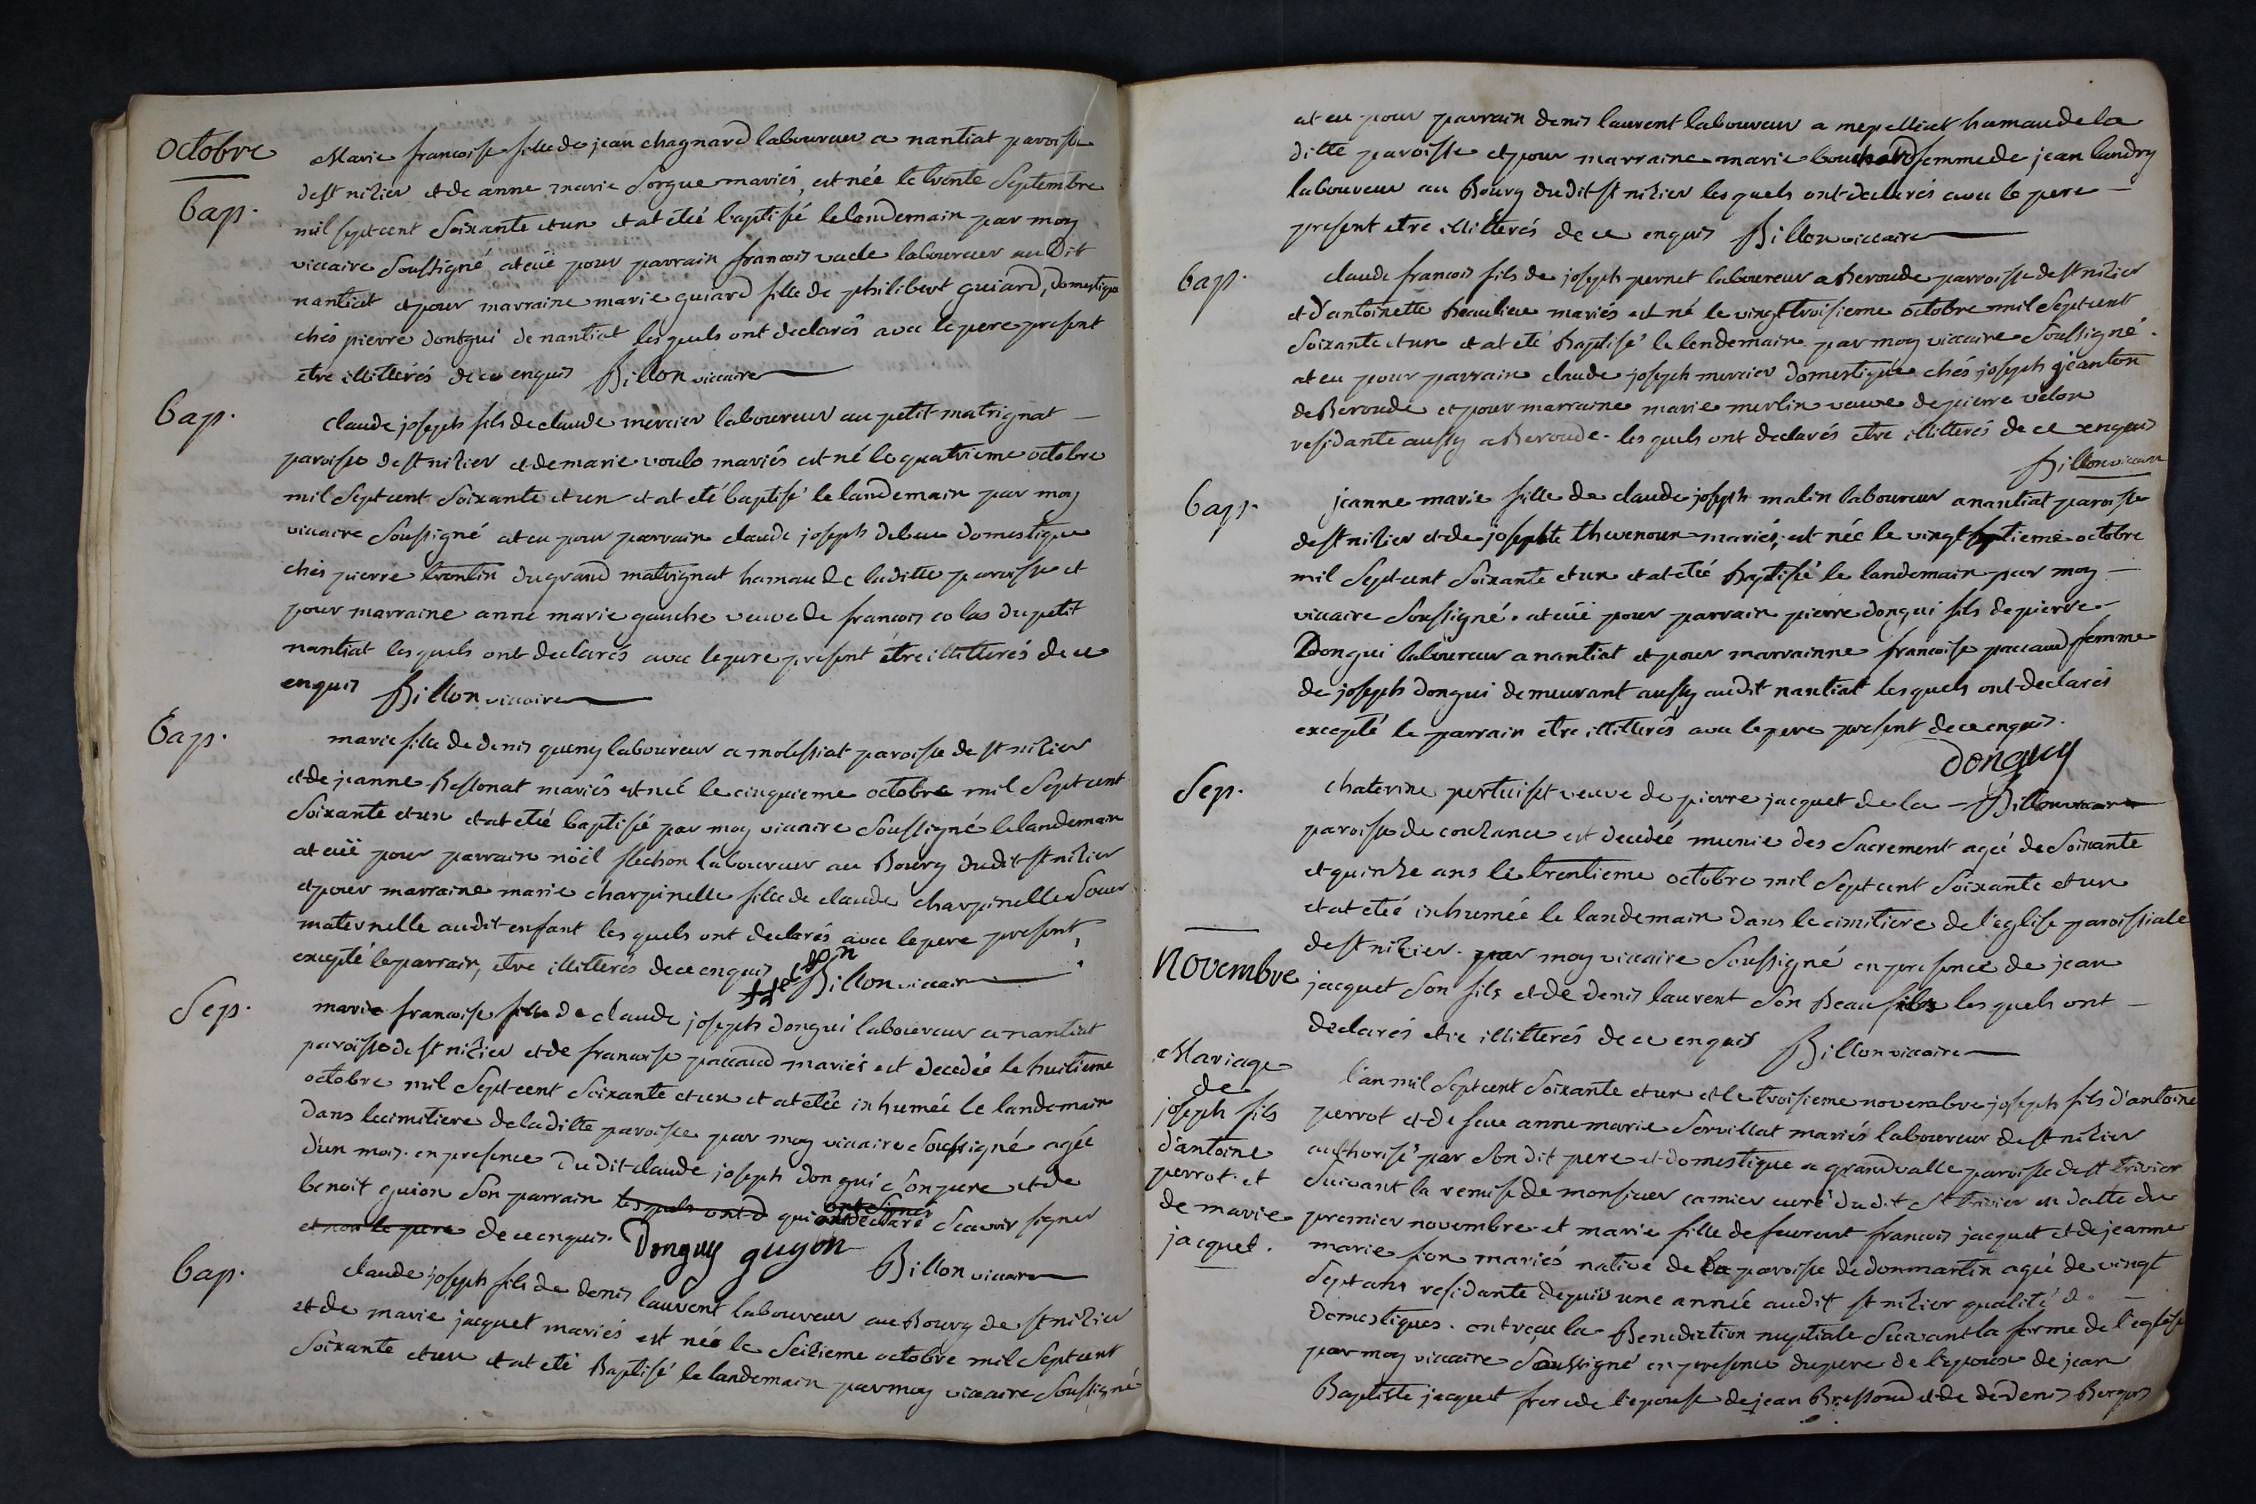 octobre
Bap.
Marie francoise fille de jean chagnard laboureur a nantiat paroisse
de st nizier et de anne marie Sorgue mariés, est née le trente Septembre
mil sept cent Soixante et un et at eteé baptisée le landemain par moy
viccaire Soussigné at eüe pour parrain francois vacle laboureur au Dit
nantiat et pour marraine marie guiard fille de philibert guiard, domestique
chés pierre dontgui de nantiat les quels ont declarés avec le pere present
etre illitterés de ce enquis Billon viccaire
Bap.
claude joseph fils de claude mercier laboureur au petit matrignat
paroisse de st nizier et de marie voulo mariés est né le quatrieme octobre
mil Sept cent Soixante et un et at eté baptisé le landemain par moy
viccaire Soussigné at eu pour parrain claude joseph domestique
chés pierre trontin du grand matrignat hamau de la ditte paroisse et
pour marraine anne marie gauche veuve de francois colas du petit
nantiat les quels ont declarés avec le pere present être illitterés de ce
enquis Billon viccaire
Bap.
marie fille de denis queny laboureur a molissiat paroisse de st nizier
et de jeanne Bessonat mariés est née le cinquieme octobre mil Sept cent
Soixante et un et at eteé baptisée par moy viccaire Soussigné le landemain
at eüe pour parrain nöel flechon laboureur au Bourg dudit st nizier
et pour marraine marie charpinelle fille de claude charpinelle Soeur
maternelle audit enfant les quels ont declarés avec le pere present,
excepté le parrain, etre illitterés de ce enquis Billon viccaire
Sep.
marie francoise fille de claude joseph dongui laboureur a nantiat
paroisse de st nizier et de francoise paccaud mariés est decedée le huitieme
octobre mil Sept cent Soixante et un et at eteé inhumée le landemain
dans le cimitiere de la ditte paroisse par moy viccaire Soussigné agée
d'un mois. en presence du dit claude joseph dongui son pere et de
benoit guion Son parrain les quels ont d qui ont declaré Scavoir signer
et non le pere de ce enquis. Donguy guyon Billon viccaire
Bap.
claude joseph fils de denis laurent laboureur au Bourg de st nizier
et de marie jacquet mariés est née le Seizieme octobre mil Sept cent
Soixante et un et at eté Baptisé le landemain par moy viccaire Soussigné
at eu pour parrain denis laurent laboureur a mepelliat hamau de la
ditte paroisse et pour marraine marie bouchard femme de jean landry
laboureur au Bourg du dit st nizier les quels ont declarés avec le pere
present etre illitterés de ce enquis Billon viccaire
Bap.
claude francois fils de joseph pernet laboureur a Beroude parroisse de st nizier
et d'antoinette Beaulieu mariés est né le vingt troisieme octobre mil Sept cent
Soixante et un et at eté Baptisé le lendemain par moy viccaire Soussigné.
at eu pour parrain claude joseph mercier domestique chés joseph jeanton
de Beroude et pour marraine marie merlin veuve de pierre velon
residante aussy a Beroude. les quels ont declarés etre illitterés de ce enquis
Billon viccaire
Bap.
jeanne marie fille de claude joseph malin laboureur a nantiat paroisse
de st nizier et de josephte thevenoux mariés, est née le vingt septieme octobre
mil Sept cent Soixante et un et at eteé Baptisée le landemain par moy
viccaire Soussigné. at eüe pour parrain pierre dongui fils de pierre
Dongui laboureur a nantiat et pour marrainne francoise paccaud femme
de joseph dongui demeurant aussy audit nantiat les quels ont declarés
excepté le parrain etre illitterés avec le pere present de ce enquis.
Donguy
Sep.
chaterine pertuiset veuve de pierre jacquet de la Billon viccaire
paroisse de couzance est decedée munie des Sacrement ageé de Soixante
et quinze ans le trentieme octobre mil Sept cent Soixante et un
et at eteé inhumée le landemain dans le cimitiere de l'eglise paroissiale
de st nizier. par moy viccaire Soussigné en presence de jean
jacquet Son fils et de denis laurent Son Beau fils les quels ont
declarés etre illitterés de ce enquis Billon viccaire
Novembre
Mariage
de
joseph fils
d'antoine
perrot. et
de marie
jacquet.
l'an mil Sept cent Soixante et un et le troisieme novembre joseph fils d'antoine
perrot et de feue anne marie Servillat mariés laboureur de st nizier
authorisé par Son dit pere et domestique a grandvalle paroisse de st trivier
Suivant la remise de monsieur camier curé du dit St trivier en datte du
premier novembre. et marie fille de feu francois jacquet et de jeanne
marie fion mariés native de la paroisse de donmartin ageé de vingt
Sept ans residante depuis une année audit st nizier qualité de
domestiques. ont recue la Benediction nuptiale Suivant la forme de l'eglise
par moy viccaire Soussigné en presence du pere de l'epoux de jean
Baptiste jacquet frere de l'epouse de jean Bressoud et de denis Berger